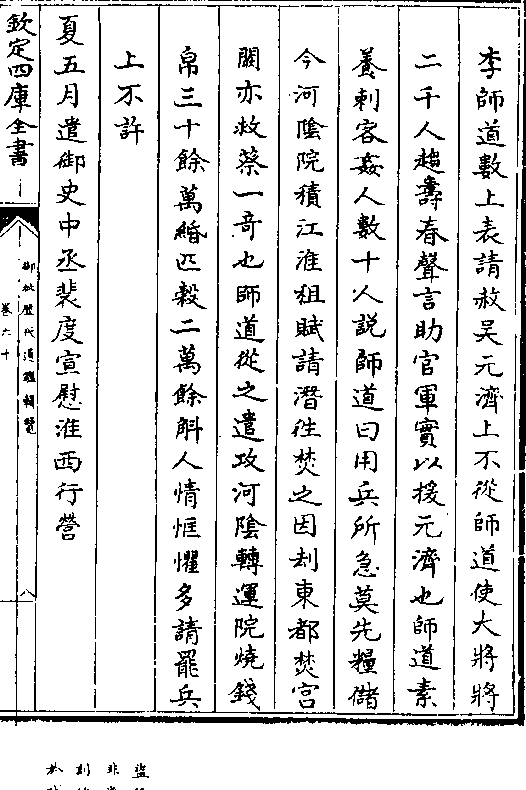 李師道數上表請赦吳元濟上不從師道使大將將
二千人趨壽春聲言助官軍實以援元濟也師道素
養刺客姦人數十人說師道曰用兵所急莫先糧儲
今河陰院積江淮租賦請潛往焚之因刦東都焚宮
闕亦救蔡一奇也師道從之遣攻河陰轉運院燒錢
帛三十餘萬緡匹穀二萬餘斛人情恇懼多請罷兵
上不許
夏五月遣御史中丞裴度宣慰淮西行營
欽定四庫全書
御批歷代通鑑輯覽
卷六十
八
盜
非
刦